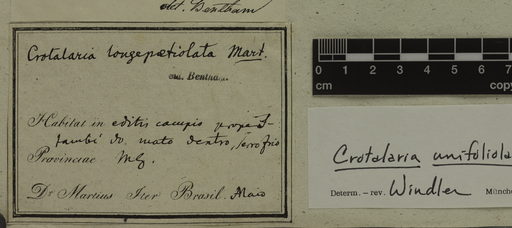 det. Bentham
Crotalaria longepetiolata Mart.
Habitat in editis campis prope
do mato dentro, Serro frio
Provinciae MG.
Dr Martius Iter Brasil. Maio
0 1 2 3 4 5 6 7
cm copy
Crotalaria unifoliola
Determ. – rev. Windler Münche